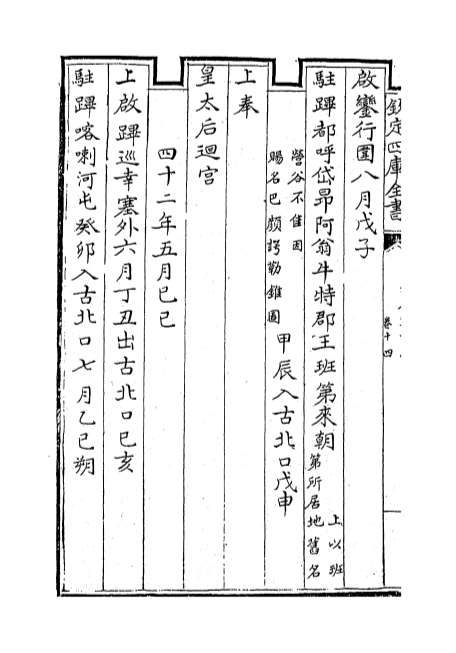 欽定四庫全書
卷十四
啟鑾行圍八月戊子
駐蹕都呼岱昻阿翁牛特郡王班第來朝
上以班
第所居地舊名
營谷不佳因
賜名巴顏諤勒錐圖
甲辰入古北口戊申
上奉
皇太后迴宮
四十二年五月己巳
上啟蹕巡幸塞外六月丁丑出古北口己亥
駐蹕喀喇河屯癸卯入古北口七月乙巳朔